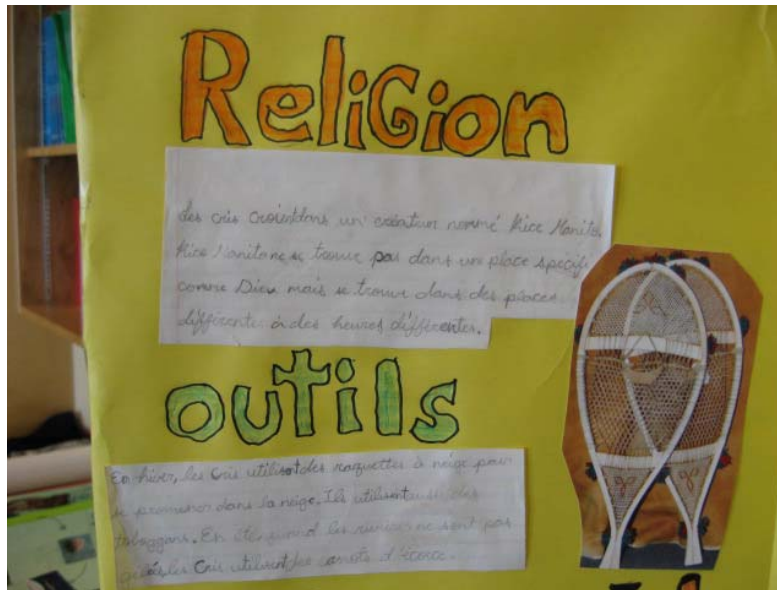 Religion
Les cris croientdans un créateur nommé Kice Manito.
Kice Manitone se trouve pas dans un place spécifi
comme Dieu mais se trouve dans des places
différentes à des heures différentes.
outils
En hiver, les Cris utilisentdes raquettes à neige pour
se promener dans la neige. Ils utilisentaussi des
toboggans. En été, quand les rivières ne sont pas
gelées, les Cris utilisent des canots d'écorce.